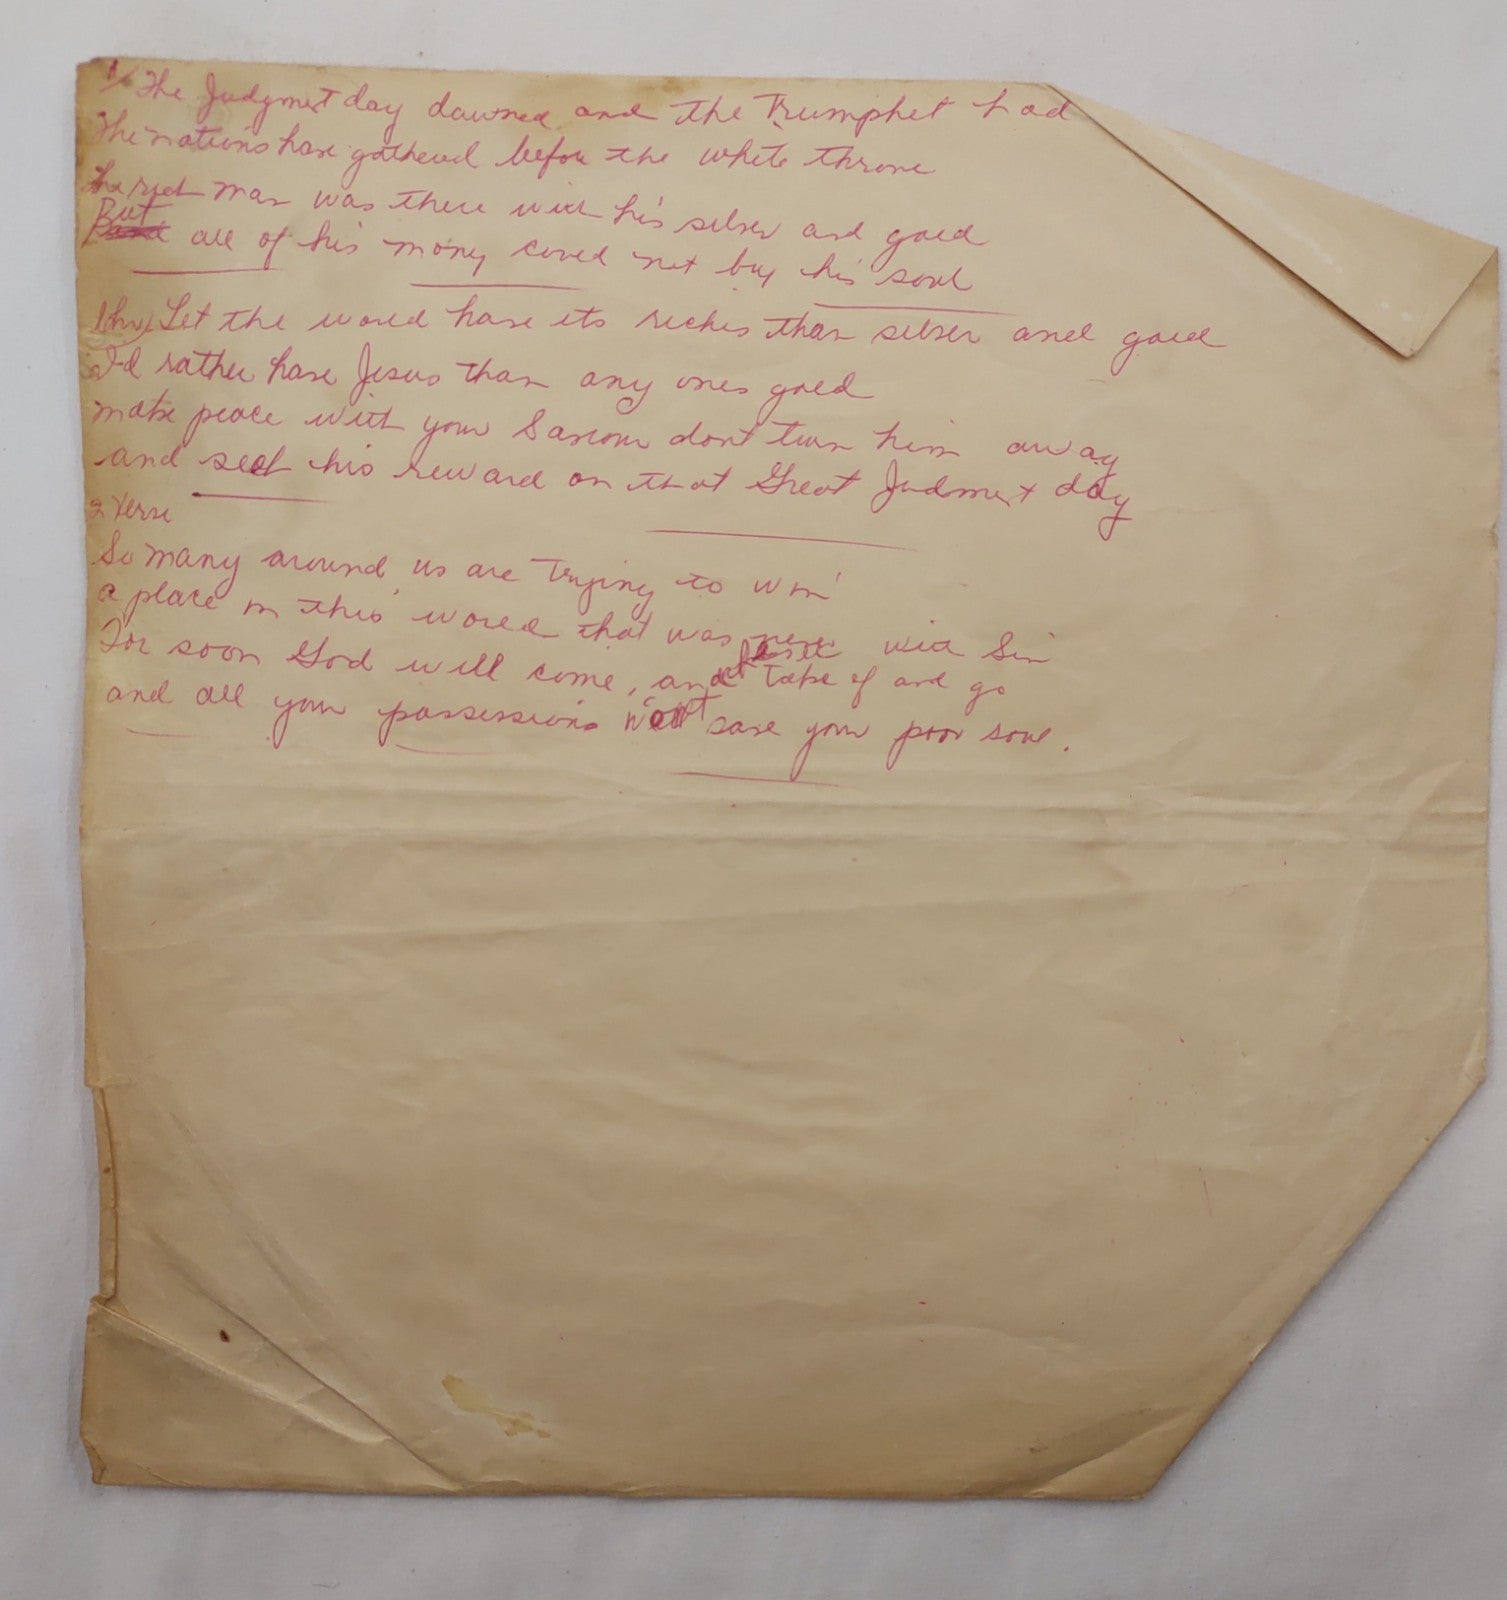 1/ The Judgment day dawned and the Trumphet had
The nations have gathered before the white throne
The rich man was there with his silver and gold
But all of his mony coued not buy his soul
(Chr) Let the world have its riches than silver and gold
I'd rather have Jesus than any ones gold
make peace with your Saviour dont turn him away
and his reward on that Great Judment day
2 Verse
So many around us are trying to win
a place in this world that was with Sin
For soon God will come, and take of and go
and all your possessions wont save your poor soul.